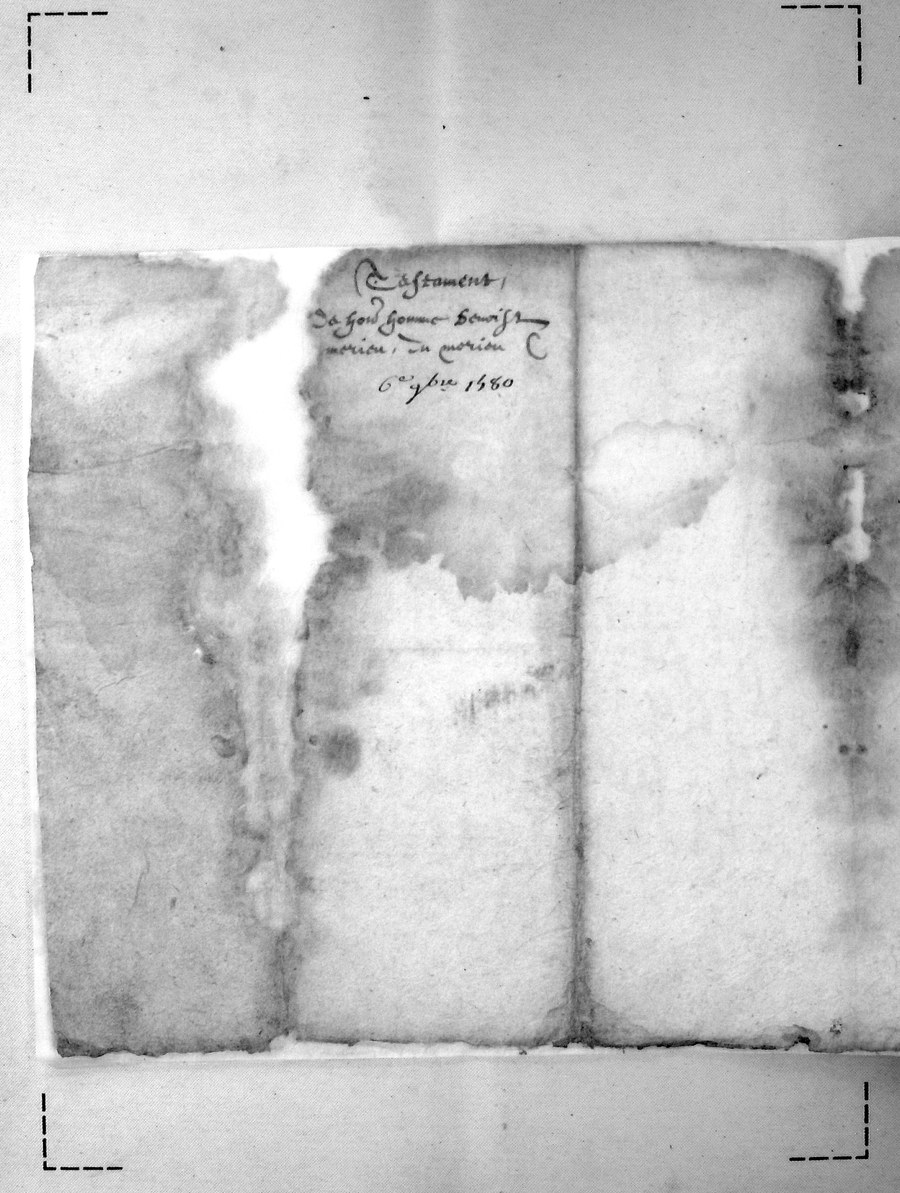 Testament,
de hon̄ homme benoist
merieu, du merieu
6e 9bre 1580